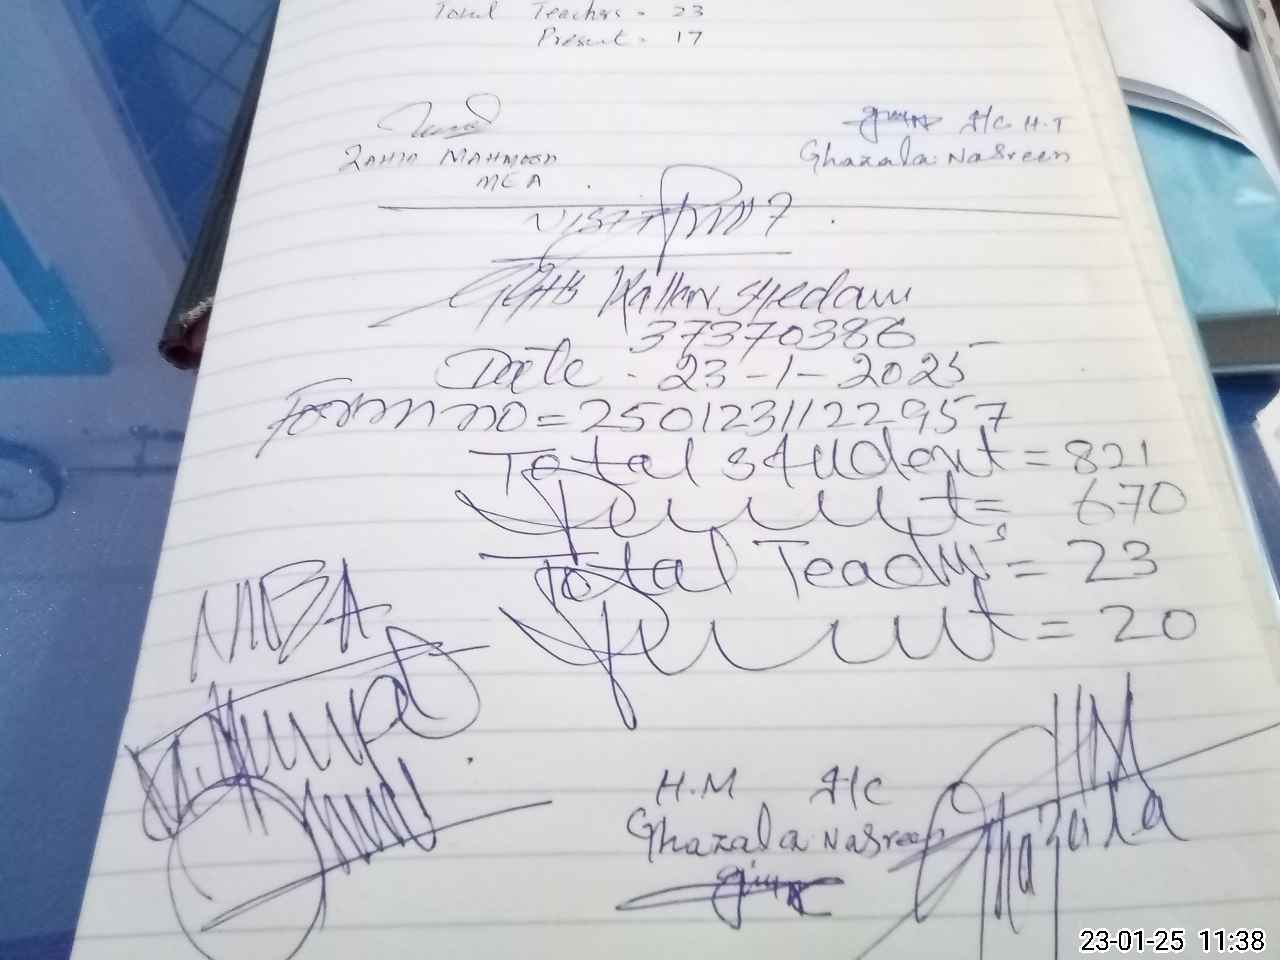 Total Teachers - 23
Present - 17
I/C H.T
ZAHID MAHMOOD
Ghazala Nasreen
MEA
VISIT
GGHS Kallar Syedan
37370386
Date - 23-1-2025
Form no = 2501231122957
Total student = 821
Present = 670
Total Teacher's = 23
Present = 20
H.M I/C
Ghazala Nasreen
Ghazala
23-01-25 11:38